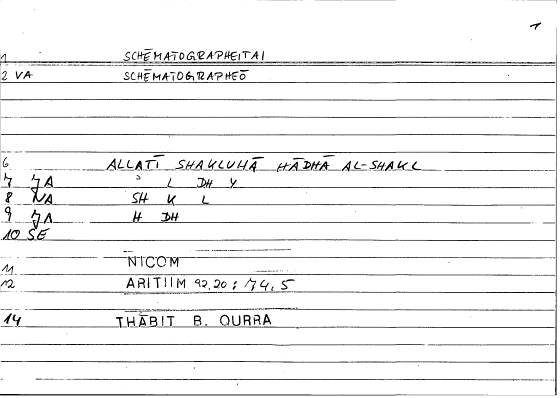 1
1 SCHĒMATOGRAPHEITAI
2 VA SCHĒMATOGRAPHEŌ
6 ALLATĪ SHAKLUHĀ HĀDHĀ AL-SHAKL
7 JA ʾ L DH Y
8 NA SH K L
9 JA H DH
10 SE
11 NICOM
12 ARITIIM 92,20 ; 74,5
14 THĀBIT B. QURRA